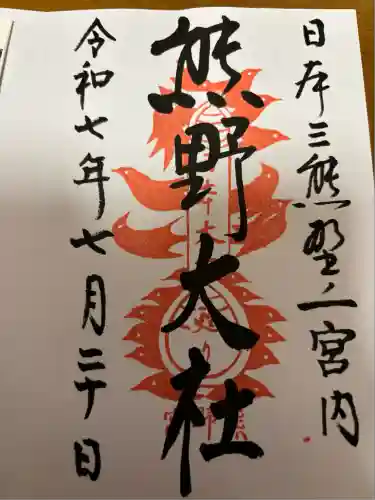 日本三熊野之宮内
熊野大社
令和七年七月二十日